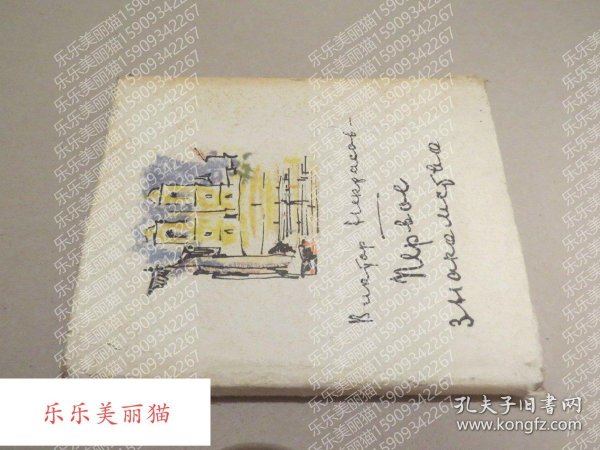 Виктор Некрасов
Первое
знакомство
乐乐美丽猫 15909342267
乐乐美丽猫
孔夫子旧书网
www.kongfz.com